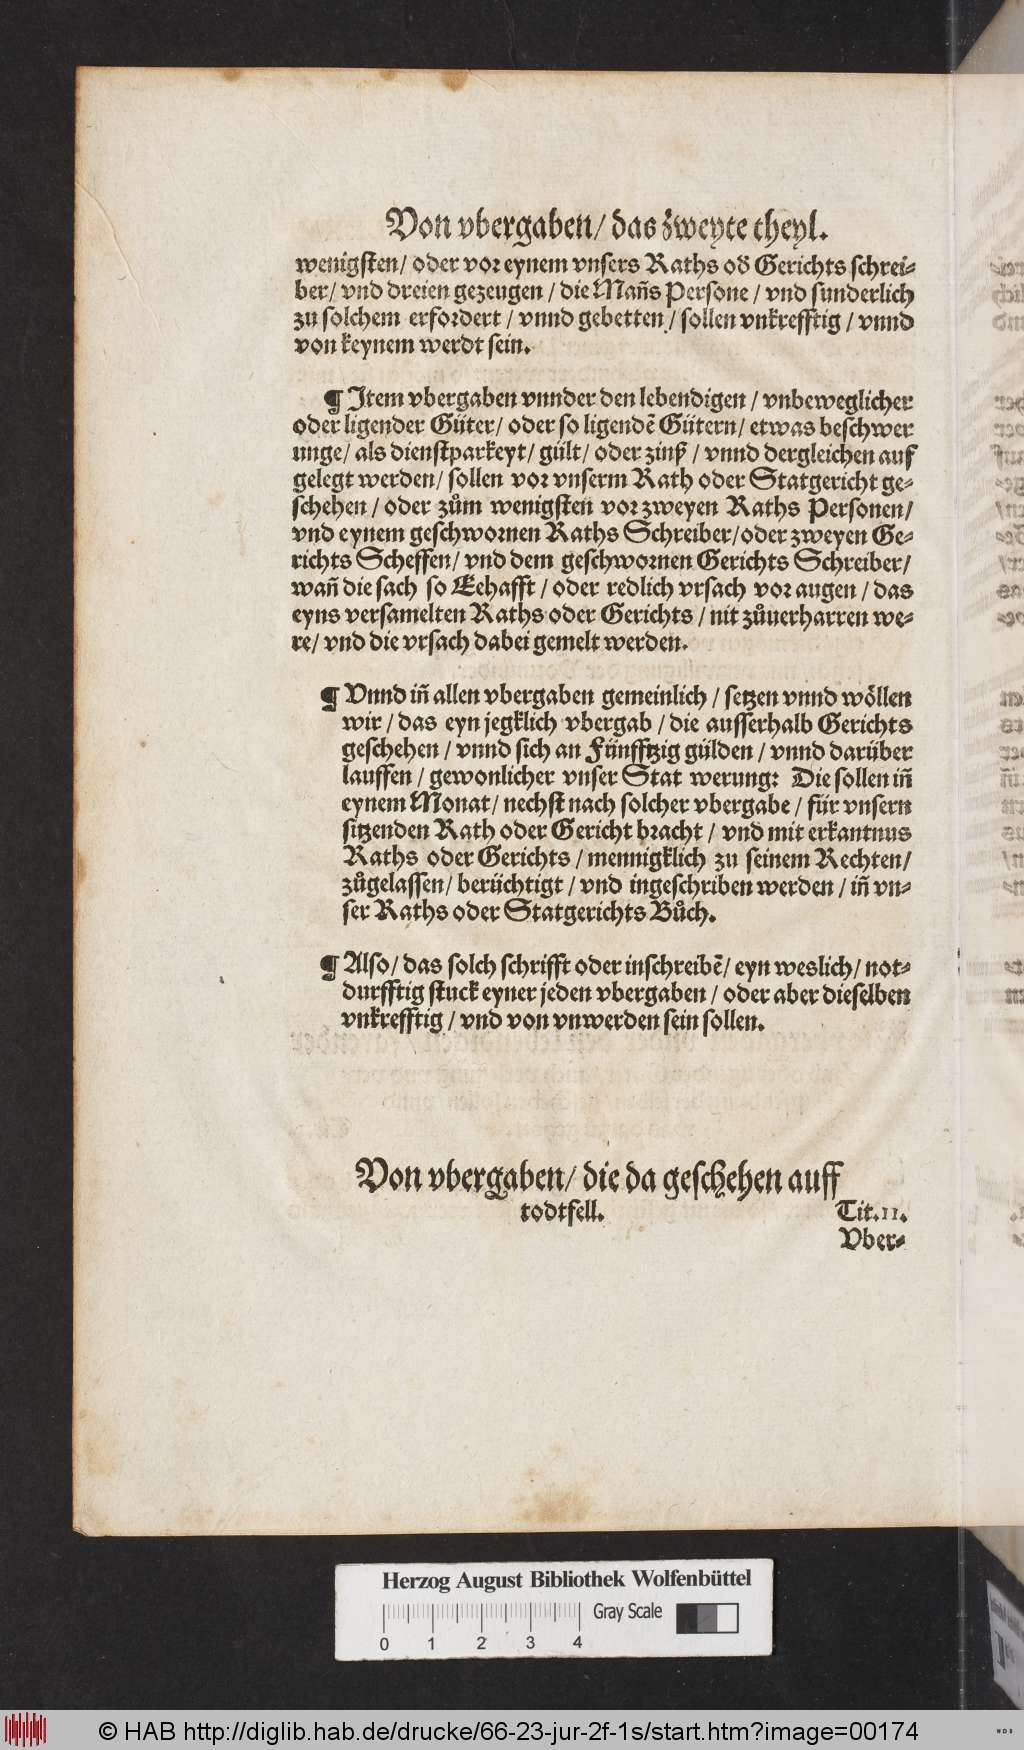 Von vbergaben/ das zweyte theyl.
wenigsten/ oder vor eynem vnsers Raths oď Gerichts schrei⸗
ber/ vnd dreien gezeugen / die Mañs Persone / vnd sunderlich
zu solchem erfordert / vnnd gebetten / sollen vnkrefftig / vnnd
von keynem werdt sein.
¶ Item vbergaben vnnder den lebendigen / vnbeweglicher
oder ligender Güter/ oder so ligendē Gütern/ etwas beschwer
unge/ als dienstparkeyt/ gült/ oder zinß / vnnd dergleichen auf
gelegt werden/ sollen vor vnserm Rath oder Statgericht ge⸗
schehen / oder zům wenigsten vor zweyen Raths Personen/
vnd eynem geschwornen Raths Schreiber/oder zweyen Ge⸗
richts Scheffen/ vnd dem geschwornen Gerichts Schreiber/
wañ die sach so Eehafft / oder redlich vrsach vor augen / das
eyns versamelten Raths oder Gerichts / nit zůuerharren we⸗
re/ vnd die vrsach dabei gemelt werden.
¶ Vnnd iñ allen vbergaben gemeinlich / setzen vnnd wöllen
wir / das eyn jegklich vbergab / die ausserhalb Gerichts
geschehen / vnnd sich an Fünfftzig gülden / vnnd darüber
lauffen / gewonlicher vnser Stat werung: Die sollen iñ
eynem Monat/ nechst nach solcher vbergabe / für vnsern
sitzenden Rath oder Gericht bracht / vnd mit erkantnus
Raths oder Gerichts / mennigklich zu seinem Rechten/
zůgelassen/ berüchtigt / vnd ingeschriben werden / iñ vn⸗
ser Raths oder Statgerichts Bůch.
¶ Also/ das solch schrifft oder inschreibē/ eyn weslich/ not⸗
durfftig stuck eyner jeden vbergaben / oder aber dieselben
vnkrefftig / vnd von vnwerden sein sollen.
Von vbergaben/ die da geschehen auff
todtfell. Tit.II.
Vber⸗
Herzog August Bibliothek Wolfenbüttel
Gray Scale
0 1 2 3 4
© HAB http://diglib.hab.de/drucke/66-23-jur-2f-1s/start.htm?image=00174